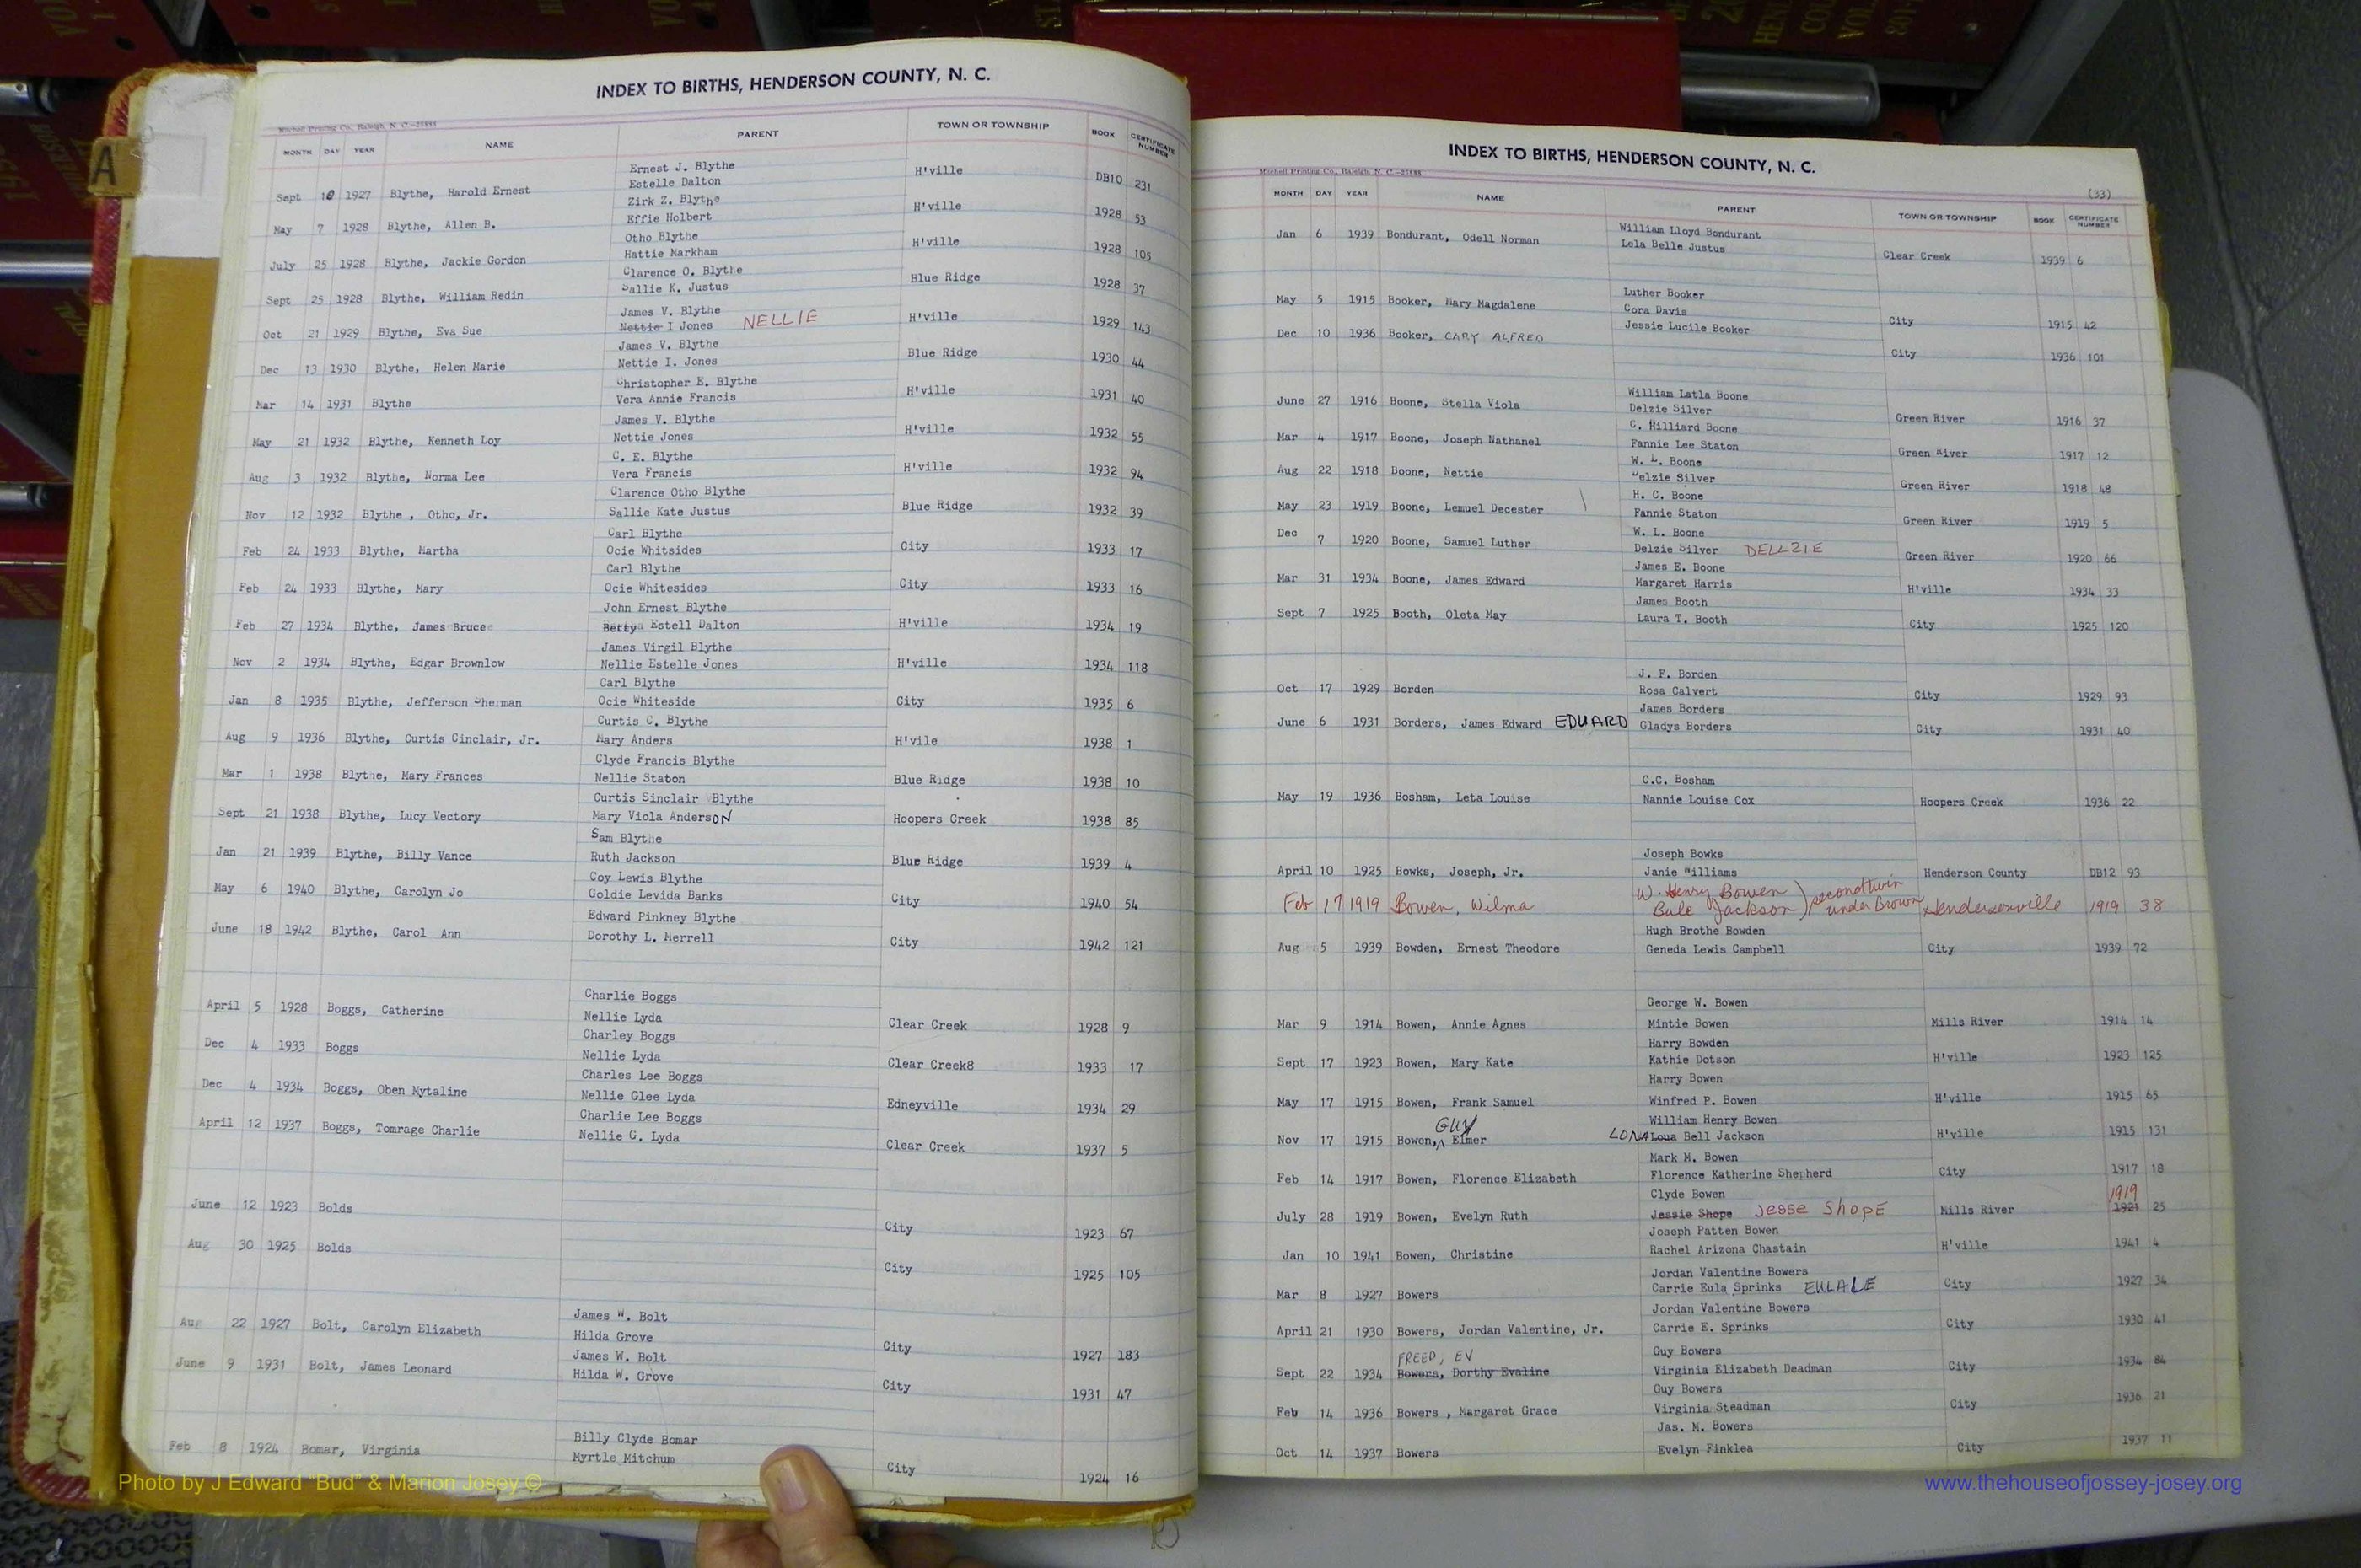 INDEX TO BIRTHS, HENDERSON COUNTY, N. C.
Mitchell Printing Co., Raleigh, N. C.—25888
MONTH DAY YEAR NAME PARENT TOWN OR TOWNSHIP BOOK CERTIFICATE NUMBER
Ernest J. Blythe
Sept 10 1927 Blythe, Harold Ernest Estelle Dalton H'ville DB10 231
Zirk Z. Blythe
May 7 1928 Blythe, Allen B. Effie Holbert H'ville 1928 53
Otho Blythe
July 25 1928 Blythe, Jackie Gordon Hattie Markham H'ville 1928 105
Clarence O. Blythe
Sept 25 1928 Blythe, William Redin Sallie K. Justus Blue Ridge 1928 37
James V. Blythe
Oct 21 1929 Blythe, Eva Sue Nettie I Jones NELLIE H'ville 1929 143
James V. Blythe
Dec 13 1930 Blythe, Helen Marie Nettie I. Jones Blue Ridge 1930 44
Christopher E. Blythe
Mar 14 1931 Blythe Vera Annie Francis H'ville 1931 40
James V. Blythe
May 21 1932 Blythe, Kenneth Loy Nettie Jones H'ville 1932 55
C. E. Blythe
Aug 3 1932 Blythe, Norma Lee Vera Francis H'ville 1932 94
Clarence Otho Blythe
Nov 12 1932 Blythe , Otho, Jr. Sallie Kate Justus Blue Ridge 1932 39
Carl Blythe
Feb 24 1933 Blythe, Martha Ocie Whitsides City 1933 17
Carl Blythe
Feb 24 1933 Blythe, Mary Ocie Whitesides City 1933 16
John Ernest Blythe
Feb 27 1934 Blythe, James Bruce Betty Estell Dalton H'ville 1934 19
James Virgil Blythe
Nov 2 1934 Blythe, Edgar Brownlow Nellie Estelle Jones H'ville 1934 118
Carl Blythe
Jan 8 1935 Blythe, Jefferson Sherman Ocie Whiteside City 1935 6
Curtis C. Blythe
Aug 9 1936 Blythe, Curtis Cinclair, Jr. Mary Anders H'vile 1938 1
Clyde Francis Blythe
Mar 1 1938 Blythe, Mary Frances Nellie Staton Blue Ridge 1938 10
Curtis Sinclair Blythe
Sept 21 1938 Blythe, Lucy Vectory Mary Viola AndersON Hoopers Creek 1938 85
Sam Blythe
Jan 21 1939 Blythe, Billy Vance Ruth Jackson Blue Ridge 1939 4
Coy Lewis Blythe
May 6 1940 Blythe, Carolyn Jo Goldie Levida Banks City 1940 54
Edward Pinkney Blythe
June 18 1942 Blythe, Carol Ann Dorothy L. Merrell City 1942 121
Charlie Boggs
April 5 1928 Boggs, Catherine Nellie Lyda Clear Creek 1928 9
Charley Boggs
Dec 4 1933 Boggs Nellie Lyda Clear Creek8 1933 17
Charles Lee Boggs
Dec 4 1934 Boggs, Oben Mytaline Nellie Glee Lyda Edneyville 1934 29
Charlie Lee Boggs
April 12 1937 Boggs, Tomrage Charlie Nellie G. Lyda Clear Creek 1937 5
June 12 1923 Bolds City 1923 67
Aug 30 1925 Bolds City 1925 105
James W. Bolt
Aug 22 1927 Bolt, Carolyn Elizabeth Hilda Grove City 1927 183
James W. Bolt
June 9 1931 Bolt, James Leonard Hilda W. Grove City 1931 47
Billy Clyde Bomar
Feb 8 1924 Bomar, Virginia Myrtle Mitchum City 1924 16
INDEX TO BIRTHS, HENDERSON COUNTY, N. C.
Mitchell Printing Co., Raleigh, N. C.—25888
(33)
MONTH DAY YEAR NAME PARENT TOWN OR TOWNSHIP BOOK CERTIFICATE NUMBER
William Lloyd Bondurant
Jan 6 1939 Bondurant, Odell Norman Lela Belle Justus Clear Creek 1939 6
Luther Booker
May 5 1915 Booker, Mary Magdalene Cora Davis City 1915 42
Dec 10 1936 Booker, CARY ALFRED Jessie Lucile Booker City 1936 101
William Latla Boone
June 27 1916 Boone, Stella Viola Delzie Silver Green River 1916 37
C. Hilliard Boone
Mar 4 1917 Boone, Joseph Nathanel Fannie Lee Staton Green River 1917 12
W. L. Boone
Aug 22 1918 Boone, Nettie Delzie Silver Green River 1918 48
H. C. Boone
May 23 1919 Boone, Lemuel Decester Fannie Staton Green River 1919 5
W. L. Boone
Dec 7 1920 Boone, Samuel Luther Delzie Silver DELLZIE Green River 1920 66
James E. Boone
Mar 31 1934 Boone, James Edward Margaret Harris H'ville 1934 33
James Booth
Sept 7 1925 Booth, Oleta May Laura T. Booth City 1925 120
J. F. Borden
Oct 17 1929 Borden Rosa Calvert City 1929 93
James Borders
June 6 1931 Borders, James Edward EDUARD Gladys Borders City 1931 40
C.C. Bosham
May 19 1936 Bosham, Leta Louise Nannie Louise Cox Hoopers Creek 1936 22
Joseph Bowks
April 10 1925 Bowks, Joseph, Jr. Janie Williams Henderson County DB12 93
W. Henry Bowen ) second twin
Feb 17 1919 Bowen, Wilma Bule Jackson ) under Brown Hendersonville 1919 38
Hugh Brothe Bowden
Aug 5 1939 Bowden, Ernest Theodore Geneda Lewis Campbell City 1939 72
George W. Bowen
Mar 9 1914 Bowen, Annie Agnes Mintie Bowen Mills River 1914 14
Harry Bowden
Sept 17 1923 Bowen, Mary Kate Kathie Dotson H'ville 1923 125
Harry Bowen
May 17 1915 Bowen, Frank Samuel Winfred P. Bowen H'ville 1915 65
GUY William Henry Bowen
Nov 17 1915 Bowen, Elmer LONA Loua Bell Jackson H'ville 1915 131
Mark M. Bowen
Feb 14 1917 Bowen, Florence Elizabeth Florence Katherine Shepherd City 1917 18
Clyde Bowen 1919
July 28 1919 Bowen, Evelyn Ruth Jessie Shope Jesse ShoPE Mills River 1921 25
Joseph Patten Bowen
Jan 10 1941 Bowen, Christine Rachel Arizona Chastain H'ville 1941 4
Jordan Valentine Bowers
Mar 8 1927 Bowers Carrie Eula Sprinks EULALE City 1927 34
Jordan Valentine Bowers
April 21 1930 Bowers, Jordan Valentine, Jr. Carrie E. Sprinks City 1930 41
FREED, EV Guy Bowers
Sept 22 1934 Bowers, Dorthy Evaline Virginia Elizabeth Deadman City 1934 84
Guy Bowers
Feb 14 1936 Bowers , Margaret Grace Virginia Steadman City 1936 21
Jas. M. Bowers
Oct 14 1937 Bowers Evelyn Finklea City 1937 11
A
Photo by J Edward "Bud" & Marion Josey ©
www.thehouseofjossey-josey.org